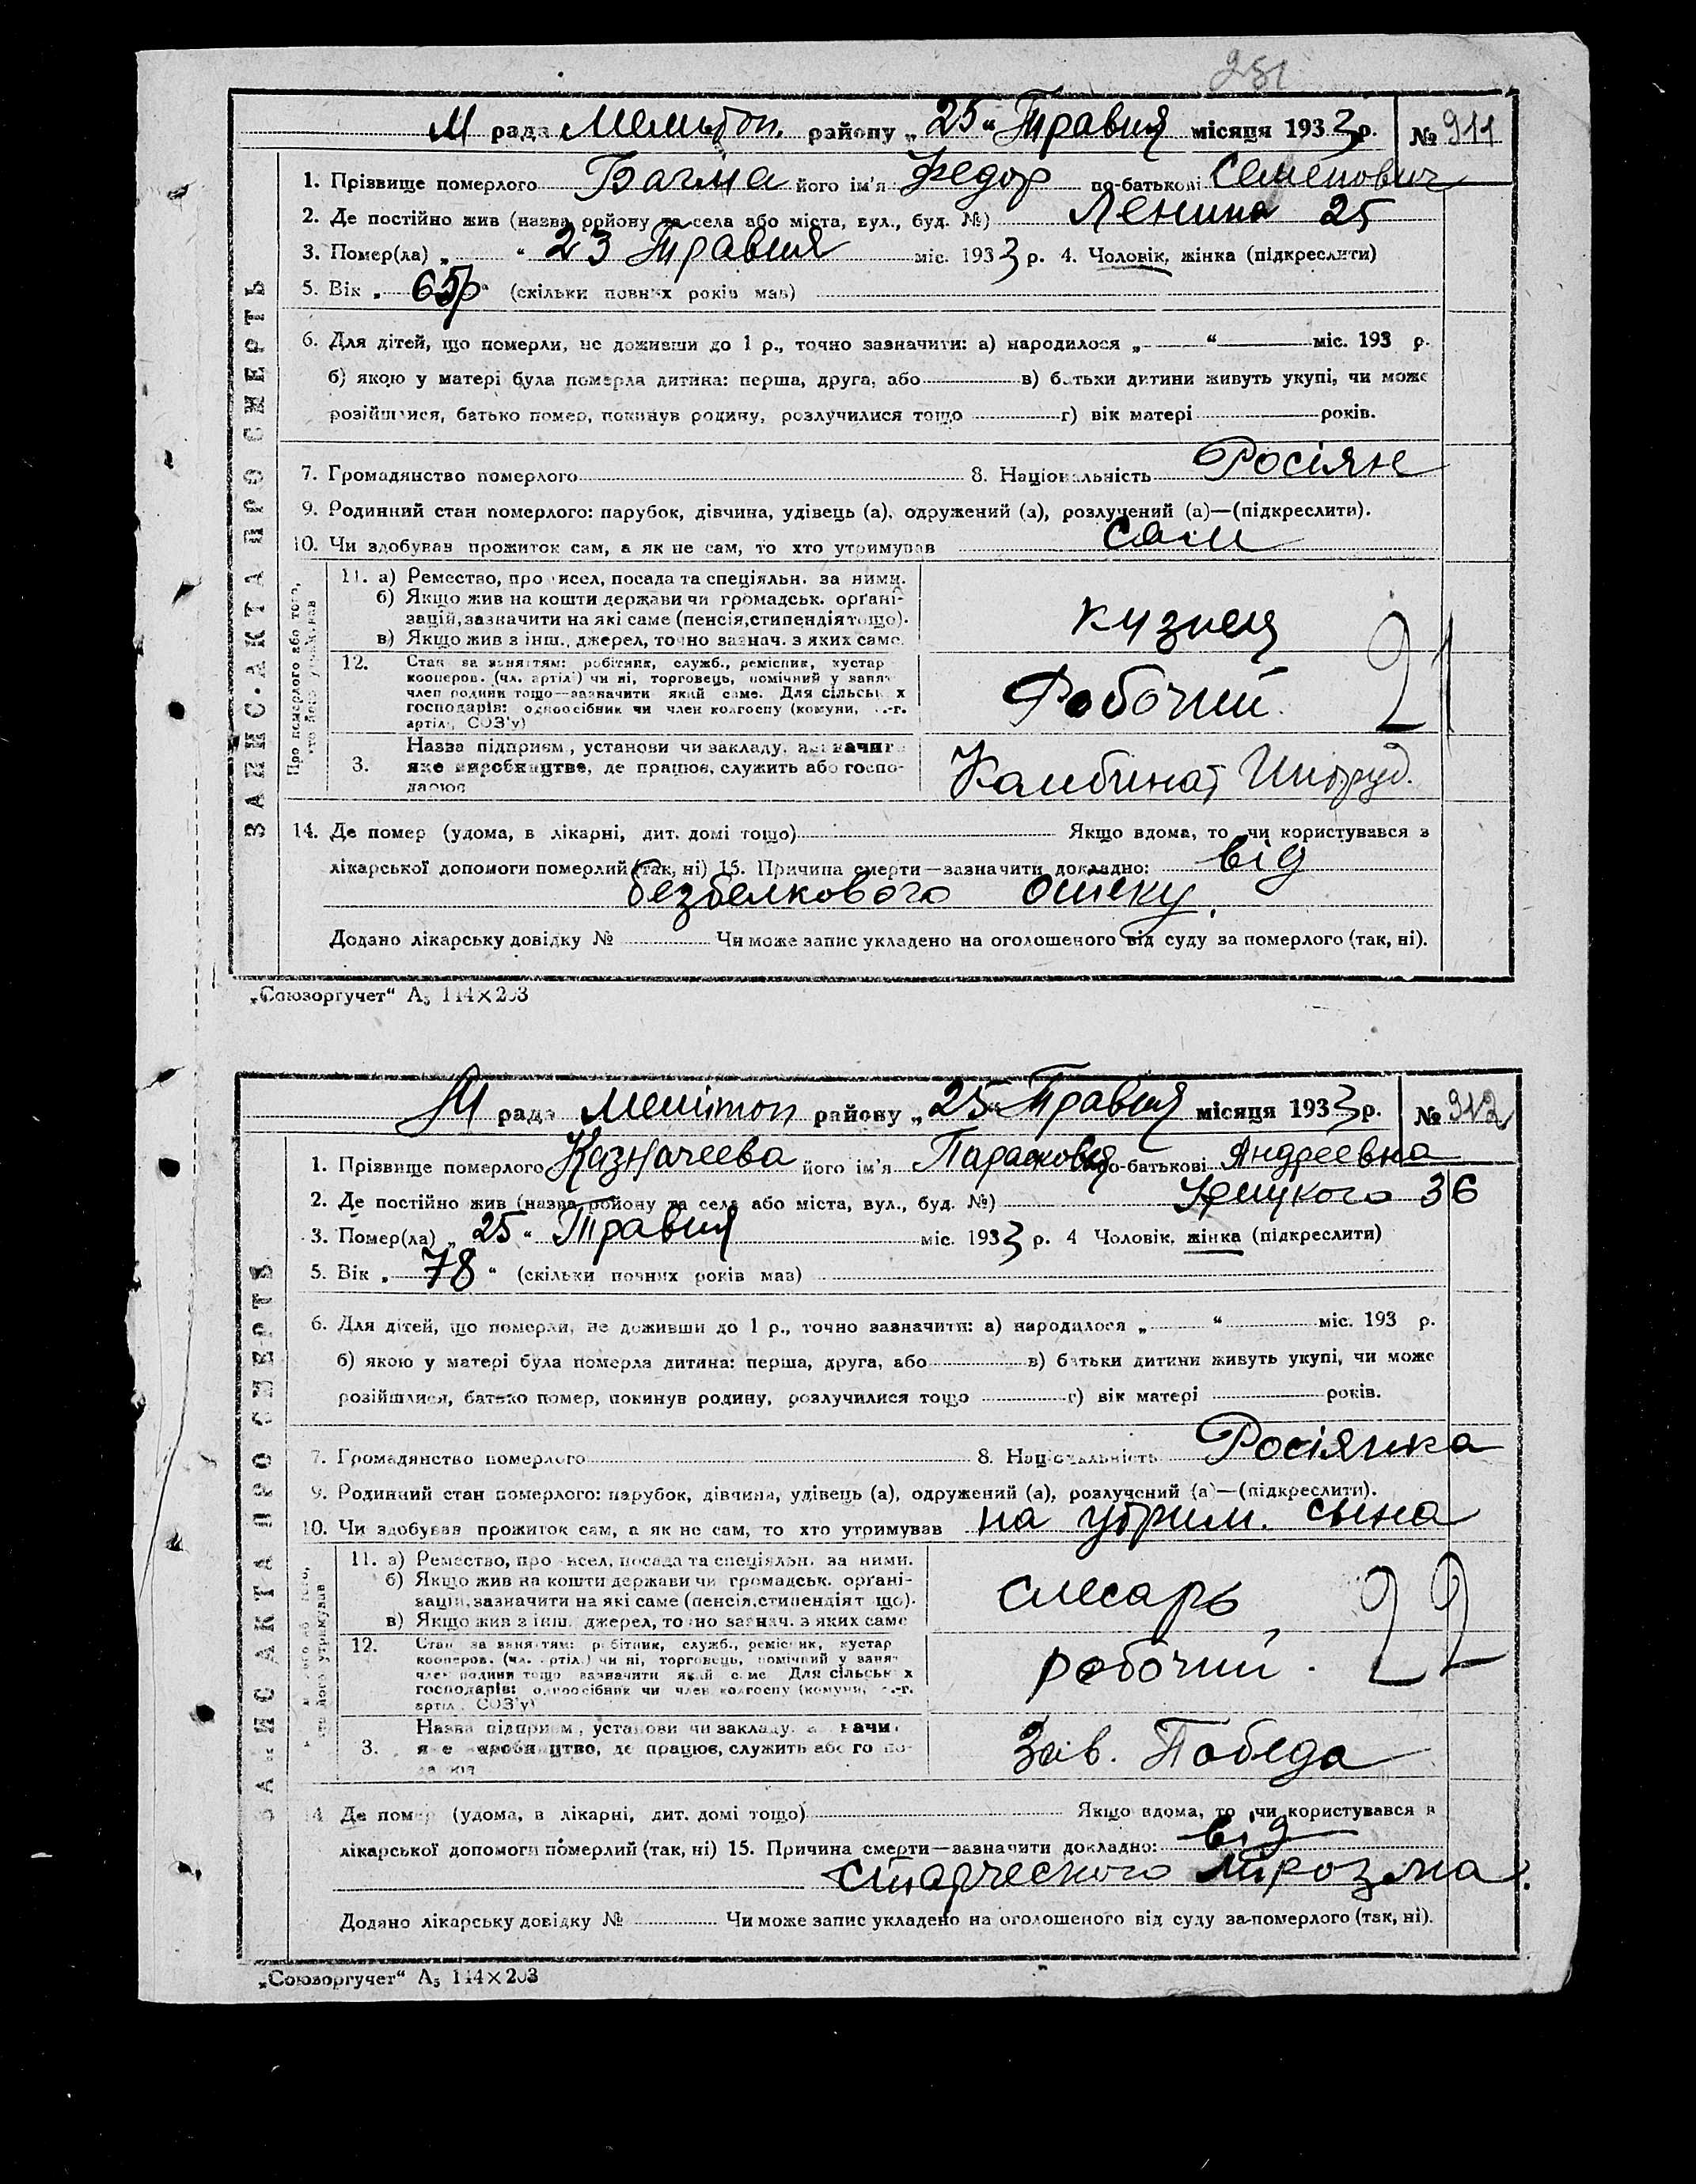 281
М рада Мелитоп. району „25“ Травня місяця 1933 р. № 911
ЗАПИС АКТА ПРО СМЕРТЬ
1. Прізвище померлого Багма його ім’я Федор по-батькові Семенович
2. Де постійно жив (назва ройону та села або міста, вул., буд. №) Ленина 25
3. Помер(ла) „ “ 23 Травня міс. 1933 р. 4. Чоловік, жінка (підкреслити)
5. Вік „ 65р “ (скільки повних років мав)
6. Для дітей, що померли, не доживши до 1 р., точно зазначити: а) народилося „ “ міс. 193 р.
б) якою у матері була померла дитина: перша, друга, або в) батьки дитини живуть укупі, чи може
розійшлися, батько помер, покинув родину, розлучилися тощо г) вік матері років.
7. Громадянство померлого 8. Національність Росіян
9. Родинний стан померлого: парубок, дівчина, удівець (а), одружений (а), розлучений (а)—(підкреслити).
10. Чи здобував прожиток сам, а як не сам, то хто утримував сам
Про померлого або того, хто його утримував
11. а) Ремество, промисел, посада та спеціяльн. за ними.
б) Якщо жив на кошти держави чи громадськ. орґані-
зацій, зазначити на які саме (пенсія, стипендія тощо).
в) Якщо жив з інш. джерел, точно зазнач. з яких саме.
кузнец
12. Стан за заняттям: робітник, служб., ремісник, кустар
кооперов. (чл. артілі) чи ні, торговець, помічний у занят
член родини тощо—зазначити який саме. Для сільськ х
господарів: одноосібник чи член колгоспу (комуни, с.-г.
артілі, СОЗ’у)
Робочий
21
3. Назва підприєм., установи чи закладу, зазначити
яке виробництво, де працює, служить або госпо-
дарює
Камбинат, Интруд.
14. Де помер (удома, в лікарні, дит. домі тощо) Якщо вдома, то чи користувався з
лікарської допомоги померлий (так, ні) 15. Причина смерти—зазначити докладно: від
безбелкового отеку.
Додано лікарську довідку № Чи може запис укладено на оголошеного від суду за померлого (так, ні).
„Союзоргучет“ А₅ 144×203
М рада Мелітоп району „25“ Травня місяця 1933 р. № 912
ЗАПИС АКТА ПРО СМЕРТЬ
1. Прізвище померлого Казначеева його ім’я Парасковья по-батькові Андреевна
2. Де постійно жив (назва ройону та села або міста, вул., буд. №) Урицкого 36
3. Помер(ла) „ 25 “ Травня міс. 1933 р. 4 Чоловік, жінка (підкреслити)
5. Вік „ 78 “ (скільки повних років мав)
6. Для дітей, що померли, не доживши до 1 р., точно зазначити: а) народилося „ “ міс. 193 р.
б) якою у матері була померла дитина: перша, друга, або в) батьки дитини живуть укупі, чи може
розійшлися, батько помер, покинув родину, розлучилися тощо г) вік матері років.
7. Громадянство померлого 8. Національність Росіянка
9. Родинний стан померлого: парубок, дівчина, удівець (а), одружений (а), розлучений (а)—(підкреслити).
10. Чи здобував прожиток сам, а як не сам, то хто утримував на утрим. сына
11. а) Ремество, промисел, посада та спеціяльн. за ними.
б) Якщо жив на кошти держави чи громадськ. орґані-
зацій, зазначити на які саме (пенсія, стипендія тощо).
в) Якщо жив з інш. джерел, точно зазнач. з яких саме
слесарь
12. Стан за заняттям: робітник, служб., ремісник, кустар
кооперов. (чл. артілі) чи ні, торговець, помічний у занят
член родини тощо зазначити який саме Для сільськ х
господарів: одноосібник чи член колгоспу (комуни, с.-г.
артілі, СОЗ’у)
робочий.
22
3. Назва підприєм., установи чи закладу, зазначити
яке виробництво, де працює, служить або госпо-
дарює
Зав. Победа
14 Де помер (удома, в лікарні, дит. домі тощо) Якщо вдома, то чи користувався з
лікарської допомоги померлий (так, ні) 15. Причина смерти—зазначити докладно: від
старческого
Додано лікарську довідку № Чи може запис укладено на оголошеного від суду за померлого (так, ні).
„Союзоргучет“ А₅ 144×203